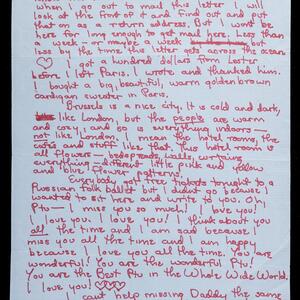 When I go out to mail this letter I will
look at the front of it and find out and put
that on as a return address. But I won't be
here for long enough to get mail here. Less than
a week - or maybe a week
less by the time this letter gets across the ocean
I got a hundred dollars from Lester
before I left Paris. I wrote and thanked him.
I bought a big, beautiful, warm golden brown
cardigan sweater in Paris.
Brussels is a nice city. It is cold and dark,
like London, but the people are warm
and cosy and so is everything indoors—
not like London, I mean the hotel rooms, the
cafes and stuff like that. This hotel room is
all flowers— bedspreads, walls, curtains
everything— different little pink and yellow
and blue flower patterns.
Everybody got free tickets tonight to a
Russian folk ballet but I didn't go because I
wanted to sit here and write to you. Oh,
Ptu— I miss you so much. I love you!
I love you. I love you! I think about you
all the time and I am sad because I
miss you all the time and I am happy
because I love you all the time. You are
wonderful! You are the wonderful Ptu.
You are the Best Ptu in the Whole Wide World.
I love you!
I can't help missing Daddy the same